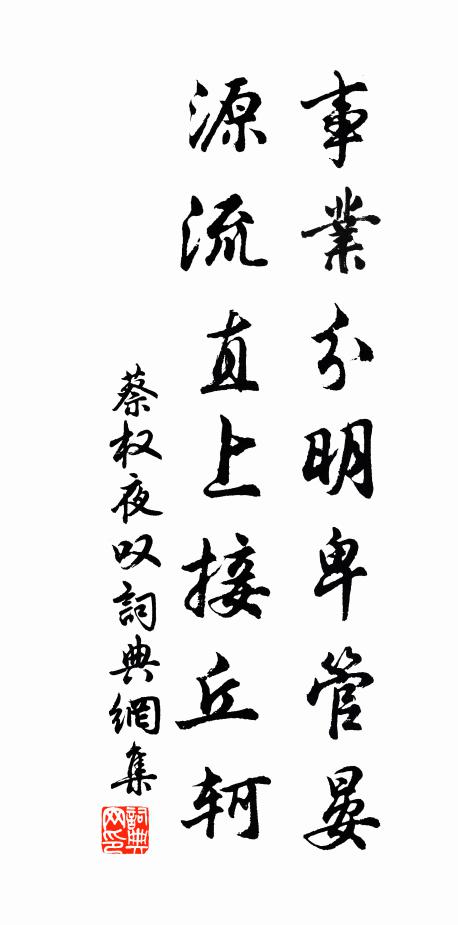 事業分明卑管晏
源流直上接丘軻
蔡权夜叹詞典網集
詞典
网印